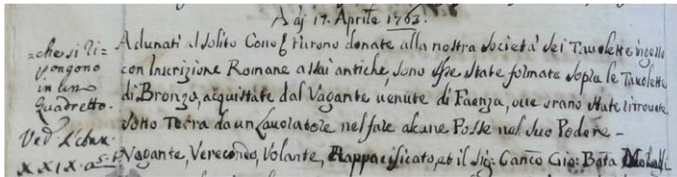 A dj 17. Aprile 1763.
= che si ri=
pongono
in uno
Quadretto.
Ved.
XXIX.
Adunati al solito furono donate alla nostra Società sei Tavolette ingesso
con Inscrizione Romane assai antiche, sono state formate sopra le Tavolette
di Bronzo, acquistate dal Vagante venute di Faenza, ove erano state ritrovate
sotto Terra da un Lavoratore nel fare alcune Fosse nel suo Podere -
Vagante, Verecondo, Volante, Rappacificato, et il Sig: Canco Gio: Bata